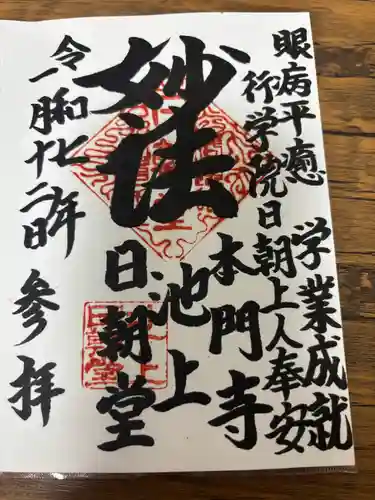 眼病平癒
学業成就
行学院日朝上人奉安
妙法
池上
本門寺
日朝堂
令和七年
一月十二日
参拝